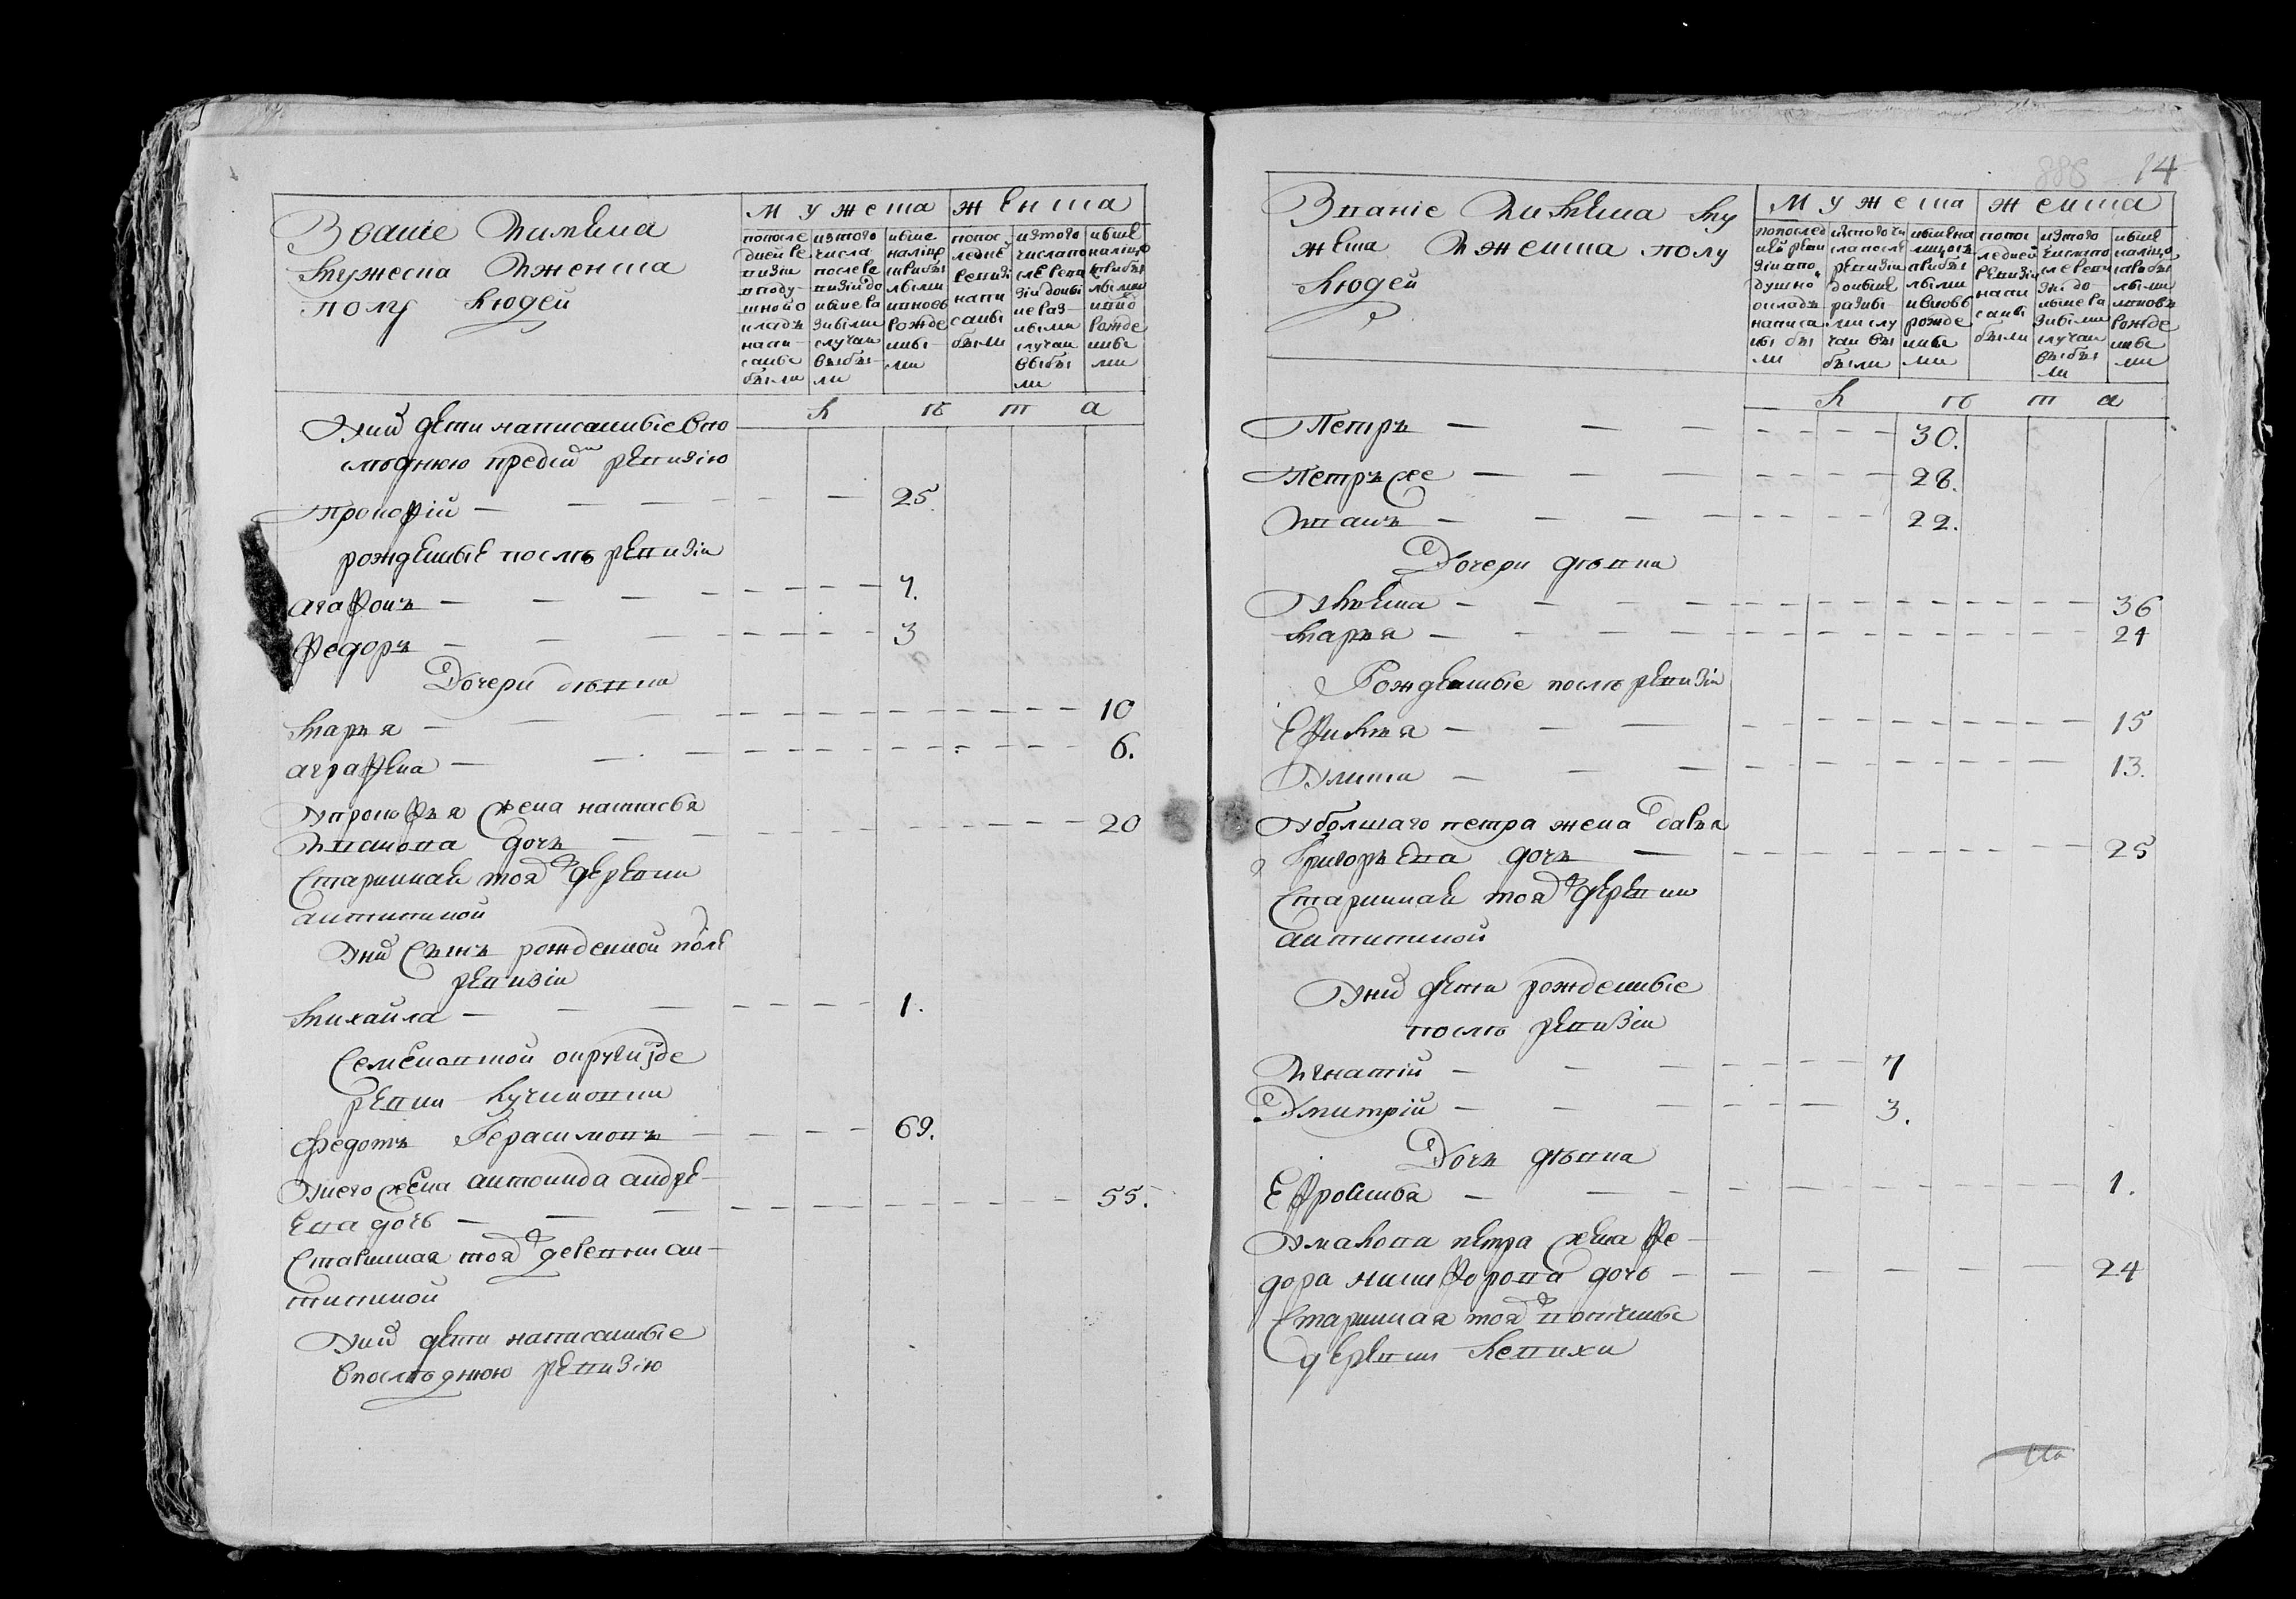 Звание и имена
мужеска и женска
полу людей
мужеска женска
попосле
дней ре
визiи
вподу-
шной о
кладъ
напи-
саны
были
изтого
числа
после ре
визiи до
ныне ра
зными
случаи
выбы-
ли
ныне
налицо
сприбы
лыми
ивновь
рожде
нны-
ми
попос
ледне
ревизi
напи
саны
были
изтого
числапо
сле реви
зiи доны
не раз-
ными
случаи
выбы
ли
ныне
налицо
сприбы
лыми
ивно
рожде
нны
ми
л ѣ т а
Уних дети написанные впо
следнюю пред сим ревизiю
Прокофiй — — — 25.
рожденные послѣ ревизiи
Агафонъ — — — 7.
Федоръ — — — 3
Дочери девки
Марья — — — 10
Аграфена — — — 6.
Упрокофья жена настасья
Иванова дочь — 20
Старинная тояж деревни
антипиной
Уних сынъ рожденной после
ревизiи
Михайла — — — 1.
Семеновской округи де
ревни Кучиновки
Федотъ Герасимовъ — 69.
Унего жена антонида андре-
ева дочь — — — 55.
Старинная тояж деревни ан-
типиной
Уних дети написанные
впоследнюю ревизiю
886 14
Званiе и имена му
жеска и женска полу
людей
мужеска женска
попослед
ней реви
зiи впо
душно
окладъ
написа
ны бы
ли
изтого чи
сла послѣ
ревизiи
доныне
разны
ми слу
чаи вы
были
ныне на
лицо съ
прибы
лыми
ивновь
рожде
нны
ми
попос
ледней
ревизiи
напи
саны
были
изтого
числапо
сле реви
зiи до
ныне ра
зными
случаи
выбы
ли
ныне
налицо
сприбы
лыми
ивновь
рожде
нны
ми
л ѣ т а
Петръ — — — 30.
Петръ же — — — 28.
Иванъ — — — 22.
Дочери девки
Улиена — — — 36
Марья — — — 21
Рожденные послѣ ревизiи
Ефимья — — — 15
Улита — — — 13.
Уболшаго петра жена Дарья
Григорьева дочь — 25
Старинная тояж деревни
антипиной
Уних дети рожденные
послѣ ревизiи
Игнатiй — — — 7
Дмитрiй — — — 3.
Дочь девка
Ефросинья — — — 1.
Умалова петра жена Фе-
дора никифорова дочь — 24
Старинная тояж вотчины
деревни Левихи